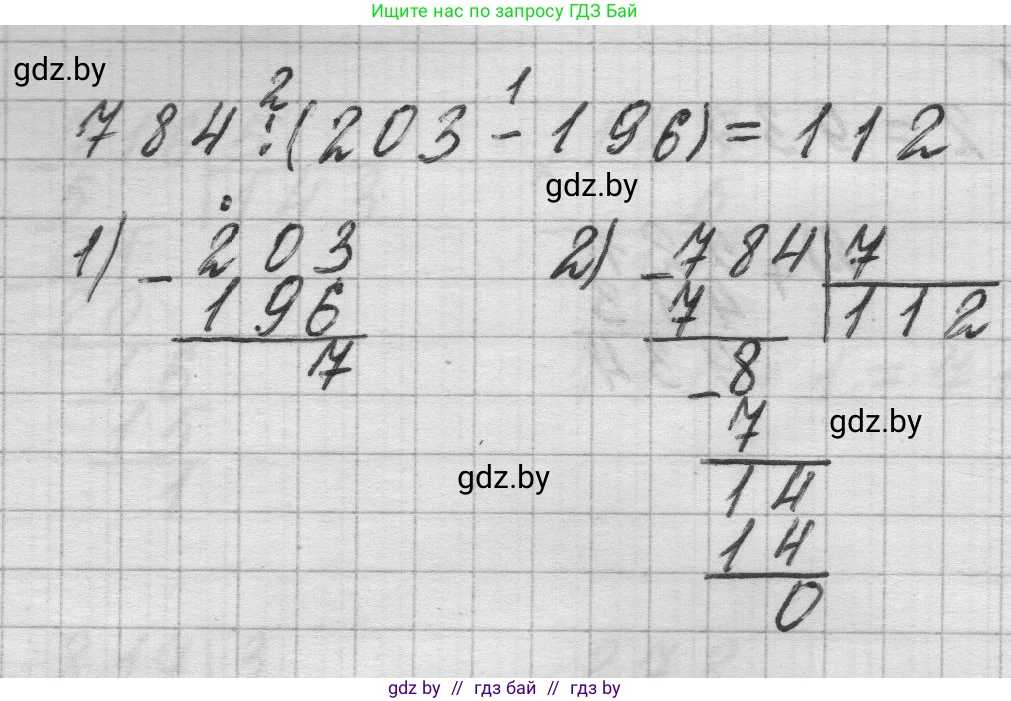 Ищите нас по запросу ГДЗ Бай
gdz.by
2 1
784:(203-196)=112
gdz.by
1) -203
196
7
2) -784 7
7 112
-8
7
gdz.by
gdz.by
14
14
0
gdz by // гдз бай // gdz by